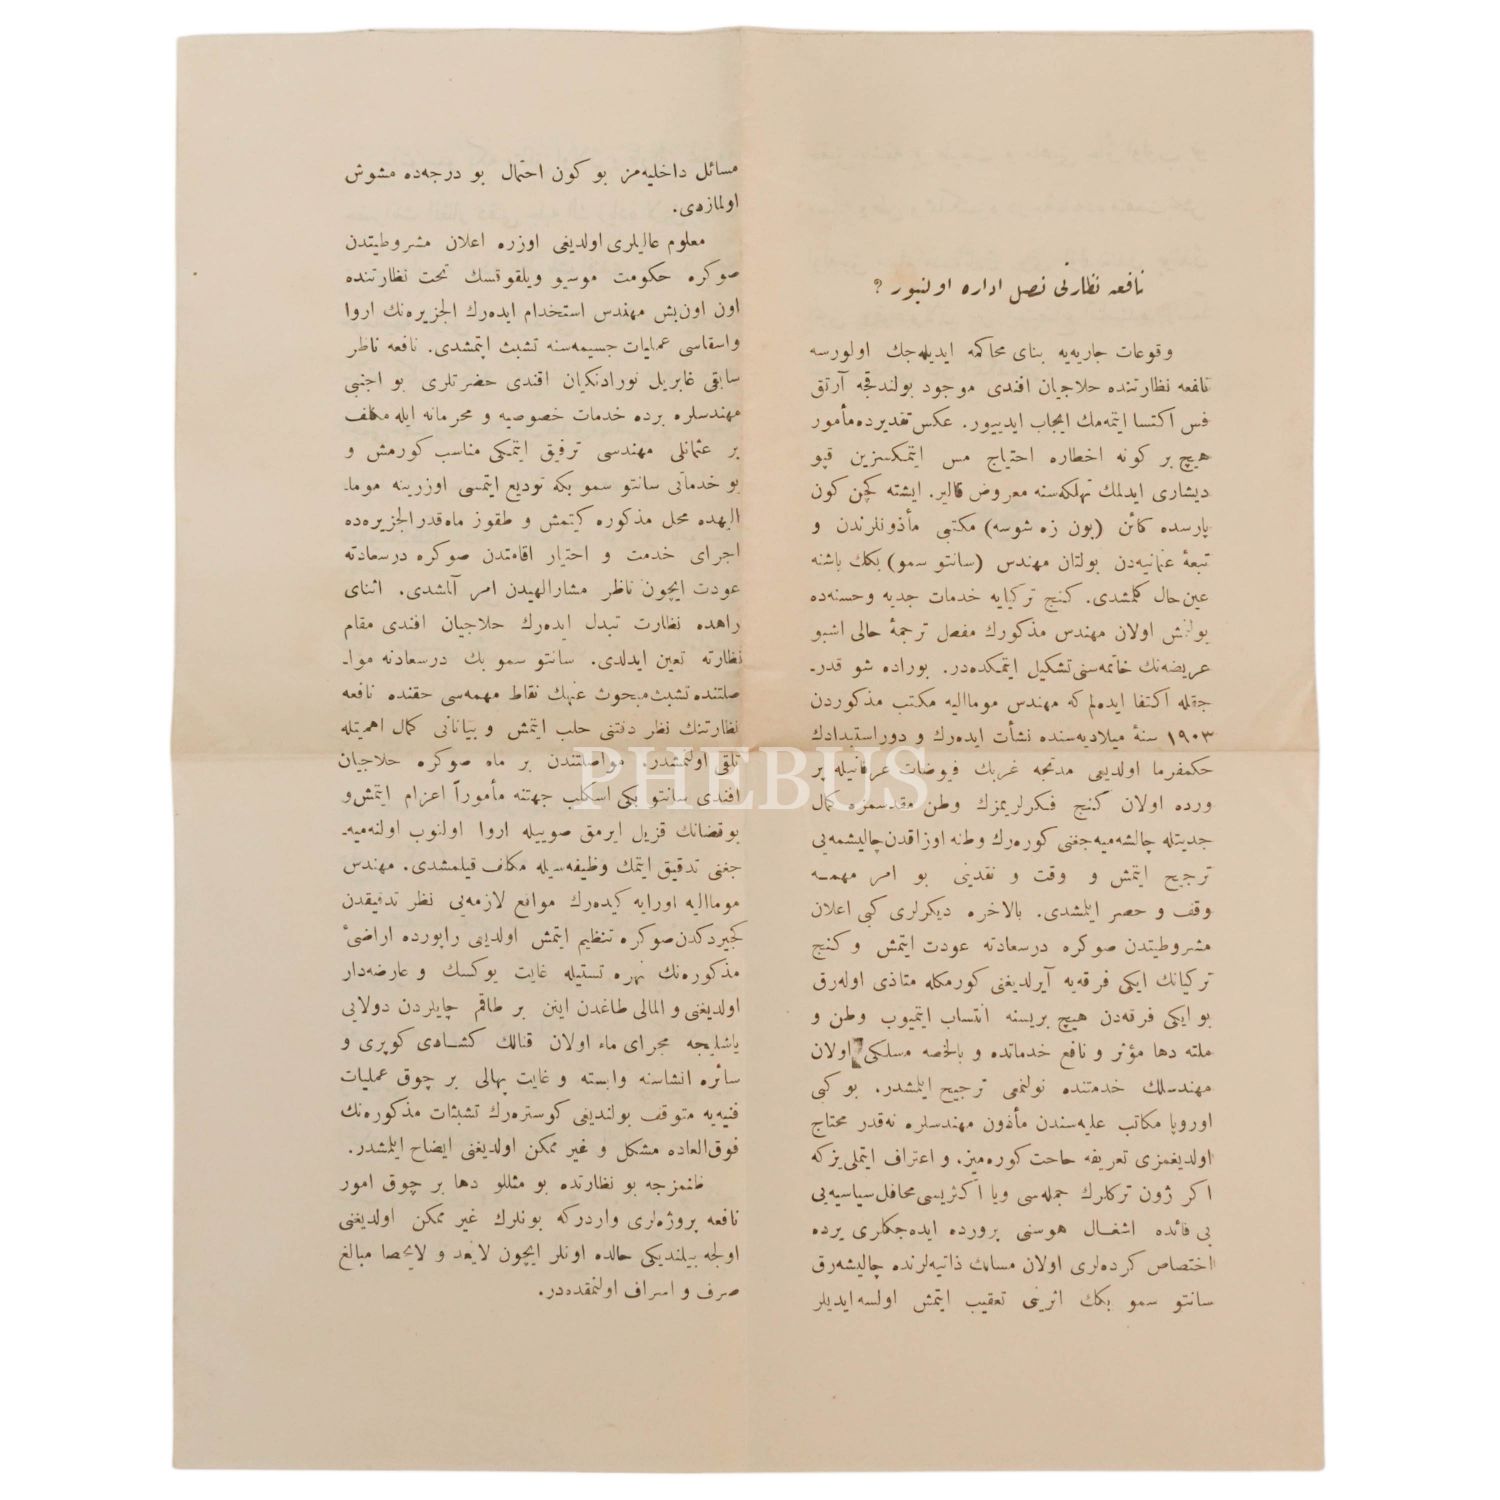 نافعه نظارتی نصل اداره اولنیور ؟
وقوعات جاریه‌یه بنای محاکمه ایدیله‌جك اولورسه
نافعه نظارتنده حلاجیان افندی موجود بولندقجه آرتق
فس اكتسا ایتمه‌مك ایجاب ایدییور. عکس تقدیرده مأمور
هیچ بر كونه اخطاره احتیاج مس ایتمکسزین قپو
دیشاری ایدلمك تهلکه‌سنه معروض قالیر. ایشته كچن كون
پارسده كائن (پون زه شوسه) مكتبی مأذونلرندن و
تبعهٔ عثمانیه‌دن بولنان مهندس (سانتو سمو) بكك باشنه
عین حال كلمشدی. كنج تركیایه خدمات جدیه وحسنه‌ده
بولنمش اولان مهندس مذكورك مفصل ترجمهٔ حالی اشبو
عریضه‌نك خاتمه‌سنی تشكیل ایتمكده‌در. بوراده شو قدر-
جقله اكتفا ایده‌لم كه مهندس مومااليه مكتب مذكوردن
۱۹۰۳ سنهٔ میلادیه‌سنده نشأت ایده‌رك و دور استبدادك
حكمفرما اولدیغی مدتجه غربك فیوضات عرفانیله پر
ورده اولان كنج فكرلریمزك وطن مقدسمزه كمال
جدیتله چالشه‌میه‌جغنی كوره‌رك وطنه اوزاقدن چالیشمه‌یی
ترجیح ایتمش و وقت و نقدینی بو امر مهمـه
وقف و حصر ایلمشدی. بالاخره دیكرلری كبی اعلان
مشروطیتدن صوكره درسعادته عودت ایتمش و كنج
تركیانك ایكی فرقه‌یه آیرلدیغنی كورمكله متاذی اوله‌رق
بو ایكی فرقه‌دن هیچ بریسنه انتساب ایتمیوب وطن و
ملته دها مؤثر و نافع خدماتده و بالخصه مسلكی اولان
مهندسلك خدمتنده بولنمغی ترجیح ایلمشدر. بو كبی
اوروپا مكاتب علیه‌سندن مأذون مهندسلره نه‌قدر محتاج
اولدیغمزی تعریفه حاجت كوره‌میز. و اعتراف ایتملی‌یز كه
اكر ژون تركلرك جمله‌سی ویا اكثریسی محافل سیاسیه‌یی
بی فائده اشغـال هوسنی پرورده ایده‌جكلری یرده
اختصاص كرده‌لری اولان مسالك ذاتیه‌لرنده چالیشه‌رق
سانتو سمو بكك اثرینی تعقیب ایتمش اولسه ایدیلر
مسائل داخلیه‌مز بو كون احتمال بو درجه‌ده مشوش
اولمازدی.
معلوم عالیلری اولدیغی اوزره اعلان مشروطیتدن
صوكره حكومت موسیو ویلقوقسك تحت نظارتنده
اون اون‌بش مهندس استخدام ایده‌رك الجزیره‌نك اروا
واسقاسی عملیات جسیمه‌سنه تشبث ایتمشدی. نافعه ناظر
سابقی غابریل نورادنكیان افندی حضرتلری بو اجنبی
مهندسلره برده خدمات خصوصیه و محرمانه ایله مكلف
بر عثمانلی مهندسی ترفیق ایتمكی مناسب كورمش و
بو خدماتی سانتو سمو بكه تودیع ایتمسی اوزرینه موما-
الیهده محل مذكوره كیتمش و طقوز ماه‌قدر الجزیره‌ده
اجرای خدمت و اختیار اقامتدن صوكره درسعادته
عودت ایچون ناظر مشارالیهدن امر آلمشدی. اثنای
راهده نظارت تبدل ایده‌رك حلاجیان افندی مقام
نظارته تعین ایدلدی. سانتو سمو بك درسعادته موا-
صلتنده تشبث مبحوث عنهك نقاط مهمه‌سی حقنده نافعه
نظارتنك نظر دقتنی جلب ایتمش و بیاناتی كمال اهمیتله
تلقی اولنمشدر. مواصلتندن بر ماه صوكره حلاجیان
افندی سانتو بكی اسكلب جهتنه مأموراً اعزام ایتمش‌و
بوقضانك قزیل ایرمق صوییله اروا اولنوب اولنه‌میه-
جغنی تدقیق ایتمك وظیفه‌سیله مكلف قیلمشدی. مهندس
مومااليه اورایه كیده‌رك مواقع لازمه‌یی نظر تدقیقدن
كچیردكدن صوكره تنظیم ایتمش اولدیغی راپورده اراضیٔ
مذكوره‌نك نهره نسبتله غایت یوكسك و عارضه‌دار
اولدیغنی و المالی طاغدن اینن بر طاقم چایلردن دولایی
باشلیجه مجرای ماء اولان قنالك كشـادی كوپری و
سائره انشاسنه وابسته و غایت بهالی بر چوق عملیات
فنیه‌یه متوقف بولندیغی كوستره‌رك تشبثات مذكوره‌نك
فوق‌العاده مشكل و غیر ممكن اولدیغنی ایضاح ایلمشدر.
ظنمزجه بو نظارتده بو مثللو دها بر چوق امور
نافعه پروژه‌لری واردركه بونلرك غیر ممكن اولدیغی
اولجه بیلندیكی حالده اونلر ایچون لایعد و لایحصا مبالغ
صرف و اسراف اولنمقده‌در.
PHEBUS